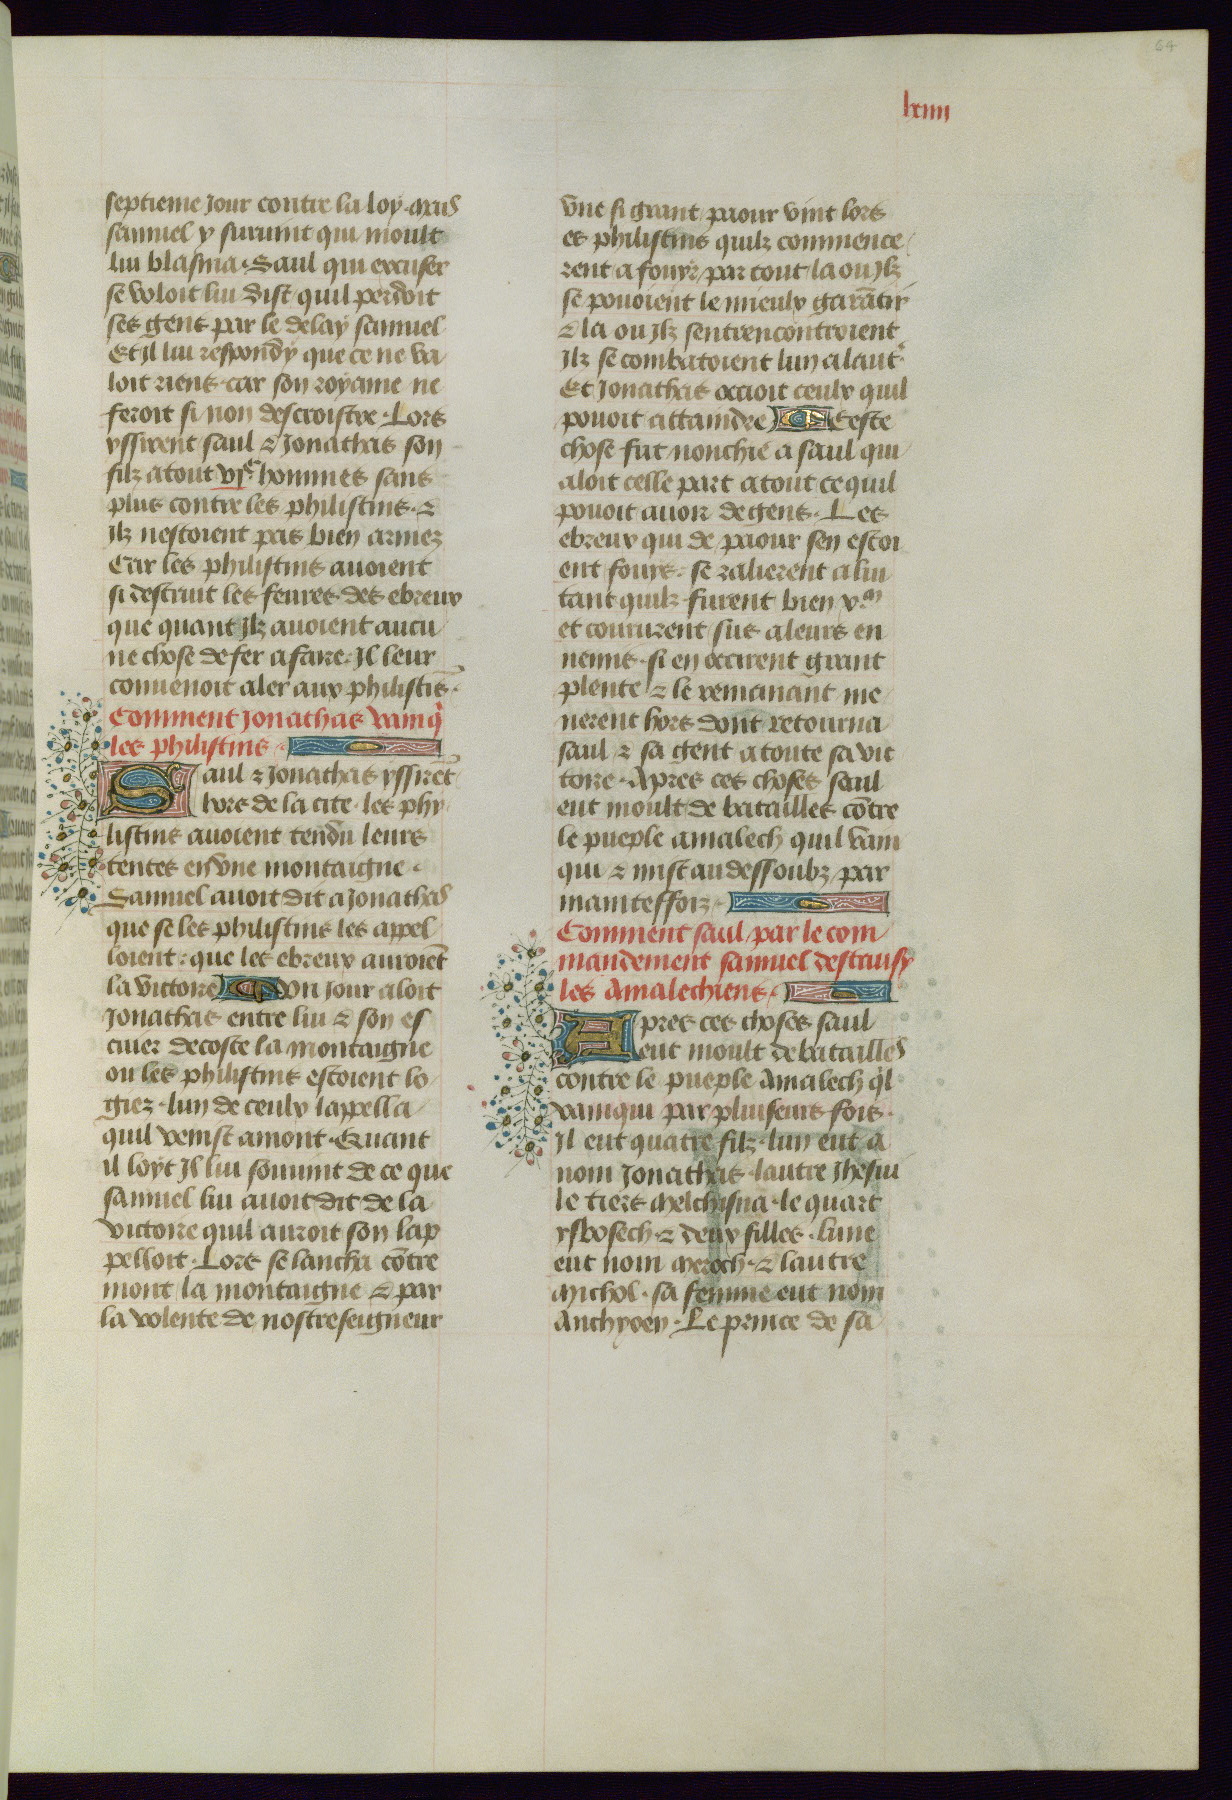 64
lxiiii
septieme Jour contre la loy. mais
samuel y suruint qui moult
lui blasma. Saul qui excuser
se voloit lui dist quil perdoit
ses gens par le delay samuel
Et Jl lui respondy que ce ne va
loit riens. car son royame ne
feroit si non descroistre. Lors
yssirent saul & Jonathas son
filz atout vjc hommes sans
plus contre les philistins. &
Jlz nestoient pas bien armez
Car les philistins auoient
si destruit les feures des ebreux
que quant Jlz auoient aucu
ne chose de fer a faire. Jl leur
conuenoit aler aux philistĩs.
Comment Jonathas vainq̃
les philistins
Saul & Jonathas yssirẽt
hors de la cite. les phi
listins auoient tendu leurs
tentes en vne montaigne.
Samuel auoit dit a Jonathas
que se les philistins les appel
loient: que les ebreux auroiẽt
la victoire Un Jour aloit
Jonathas entre lui & son es
cuier decoste la montaigne
ou les philistins estoient lo
giez. lun de ceulx lappella
quil venist amont. Quant
il loyt Jl lui souuint de ce que
samuel lui auoit dit de la
victoire quil auroit son lap
pelloit. Lors se lancha cõtre
mont la montaigne & par
la volente de nostreseigneur
vne si grant paour vint lors
es philistins quilz commence
rent a fouyr par tout la ou Jlz
se pouoient le mieulx garãtir
& la ou Jlz sentrencontroient
Jlz se combatoient lun a laut̾
Et Jonathas occioit ceulx quil
pouoit attaindre Ceste
chose fut nonchie a saul qui
aloit celle part atout ce quil
pouoit auoir de gens. Les
ebreux qui de paour sen estoi
ent fouys. se ralierent a lui
tant quilz furent bien xm
et coururent sus a leurs en
nemis. si en occirent grant
plente & le remanant me
nerent hors dont retourna
saul & sa gent a toute sa vic
toire. Apres ces choses saul
eut moult de batailles cõtre
le pueple amalech quil vain
qui & mist au dessoubz par
maint effoiz.
Comment saul par le com
mandement samuel destruisy
les Amalechiens.
Apres ces choses saul
eut moult de batailles
contre le pueple Amalech q̃l
vainqui par pluiseurs fois.
Jl eut quatre filz. lun eut a
nom Jonathas. lautre Jhesui
le tiers melchisua. le quart
ysbosech. & deux filles. lune
eut nom meroch. & lautre
michol. sa femme eut nom
Anchyoen. Le prince de sa